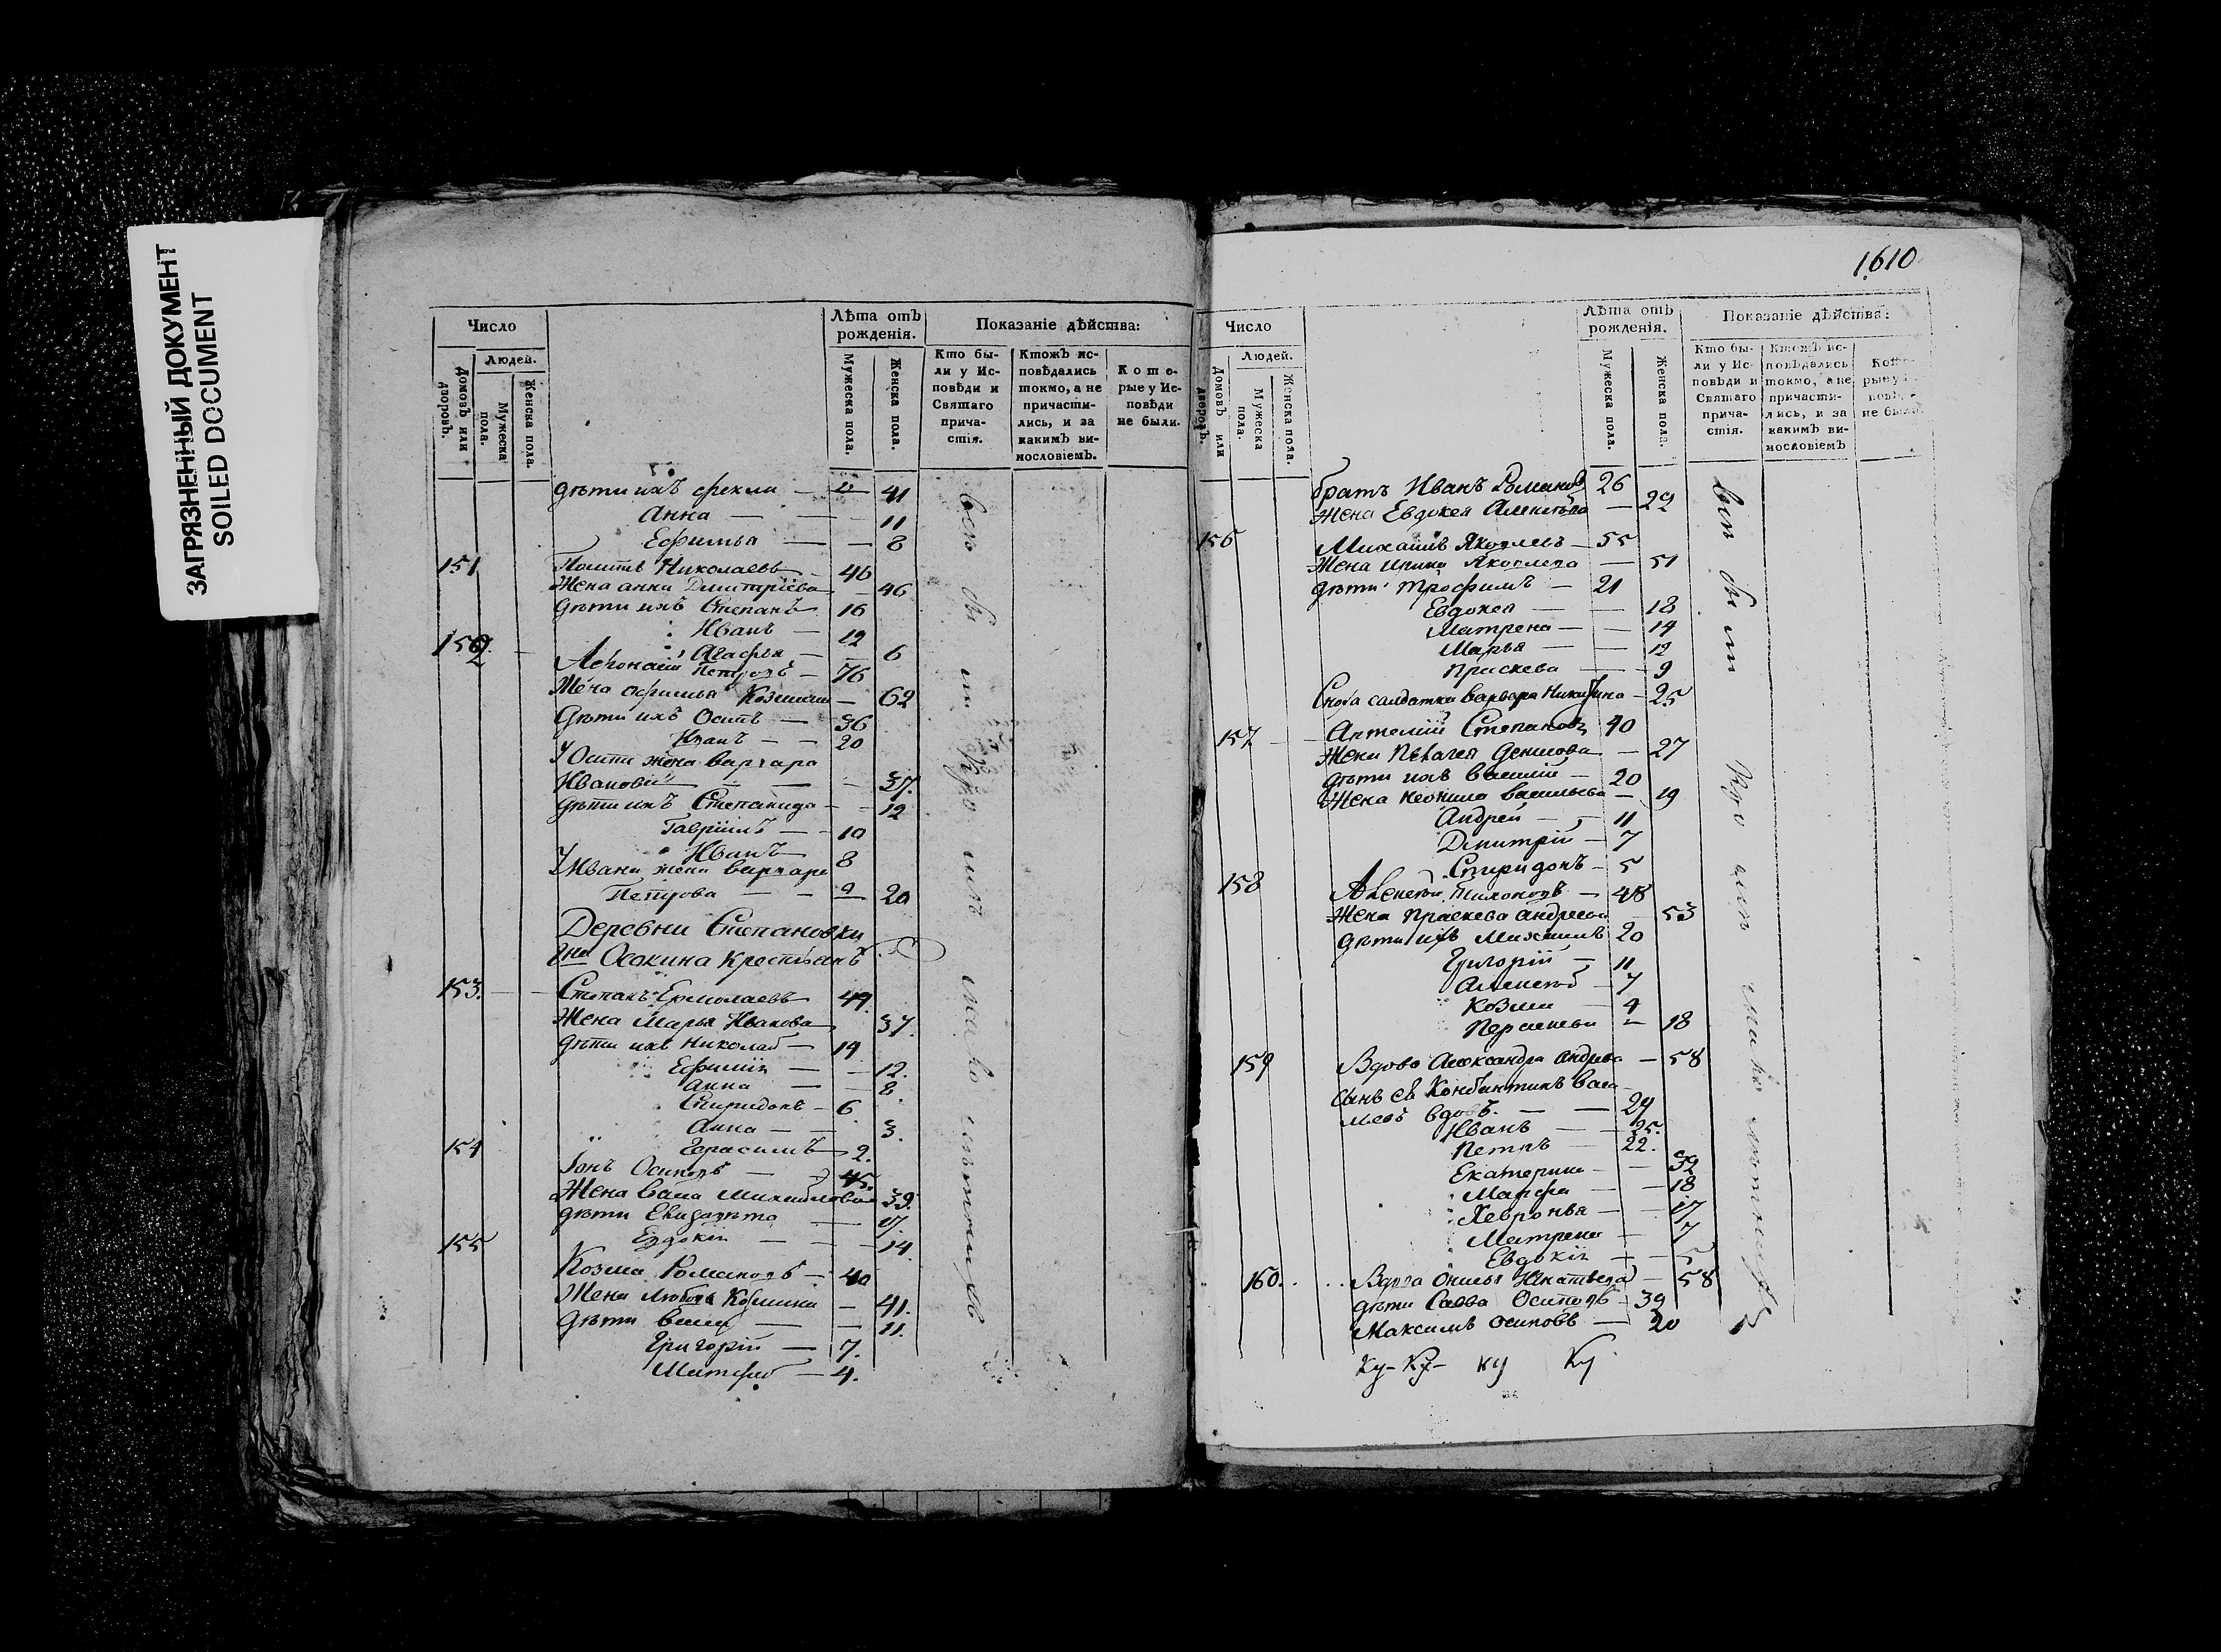 ЗАГРЯЗНЕННЫЙ ДОКУМЕНТ
SOILED DOCUMENT
Число
Людей.
Домовъ или дворовъ.
Мужеска пола.
Женска пола.
Лѣта отъ рожденія.
Мужеска пола.
Женска пола.
Показаніе дѣйства:
Кто были у Исповѣди и Святаго причастія.
Ктожъ исповѣдались токмо, а не причастились, и за какимъ винословіемъ.
Которые у Исповѣди не были.
дѣти ихъ Фекла — 41
Анна — 11
Ефимья — 8
151 Николаевъ — 46
Жена Анна Дмитріева — 46
дѣти ихъ Степанъ 16
Иванъ — 12
Агафья — 6
152 Афонасій Петровъ — 76
Жена Офимья Козмина — 62
Дѣти ихъ Осипъ — 36
Иванъ — 20
У Осипа жена Варвара
Иванова — 37.
дѣти ихъ Степанида — 12
Гавріилъ — 10
Иванъ 8
У Ивана жена Варвара
Петрова — 20
Деревни Степановки
Гна Осокина Крестьянъ
153. Степанъ Ермолаевъ 49.
Жена Марья Иванова 37.
Дѣти ихъ Николай — 19
Ефимія — 12.
Анна — 8
Спиридонъ — 6
Анна — 3.
Герасимъ — 2.
154 Осиповъ — 45.
Жена Михайлова 39.
дѣти Елизавета — 17.
Евдокія — 14
155 Козма Романовъ — 40
Жена Козмина — 41.
Дѣти — 11.
Григорій — 7.
Матфей — 4.
1610
Число
Людей.
Домовъ или дворовъ.
Мужеска пола.
Женска пола.
Лѣта отъ рожденія.
Мужеска пола.
Женска пола.
Показаніе дѣйства:
Кто были у Исповѣди и Святаго причастія.
Ктожъ исповѣдались токмо, а не причастились, и за какимъ винословіемъ
братъ Иванъ Романовъ 26
Жена Евдокея — 29
156 Михаилъ Яковлевъ — 55
Жена Яковлева — 51
дѣти Трофимъ — 21
Евдокея — 18
Матрена — 14
Марья — 12
Праскева — 9
Сноха салдатка Варвара Никитина — 25
157 Степановъ 40
Жена Пелагея Денисова — 27
дѣти ихъ Василій — 20
Жена Неонила Васильева — 19
Андрей — 11
Дмитрій — 7
Спиридонъ — 5
158 — 48
Жена Праскева Андреева — 53
дѣти ихъ Михаилъ 20
Григорій — 11
Алексей — 7
Козма — 4
— 18
159 Вдова Александра — 58
Сынъ ея
вдовъ. — 29
Иванъ — 25.
Петръ — 22.
Екатерина — 32
Марфа — 18
Хевронья — 17
Матрена 7
Евдокія — 5
160. Вдова — 58
дѣти Савва Осиповъ — 39
Максимъ Осиповъ — 20
Ку- Ку- Ку Ку